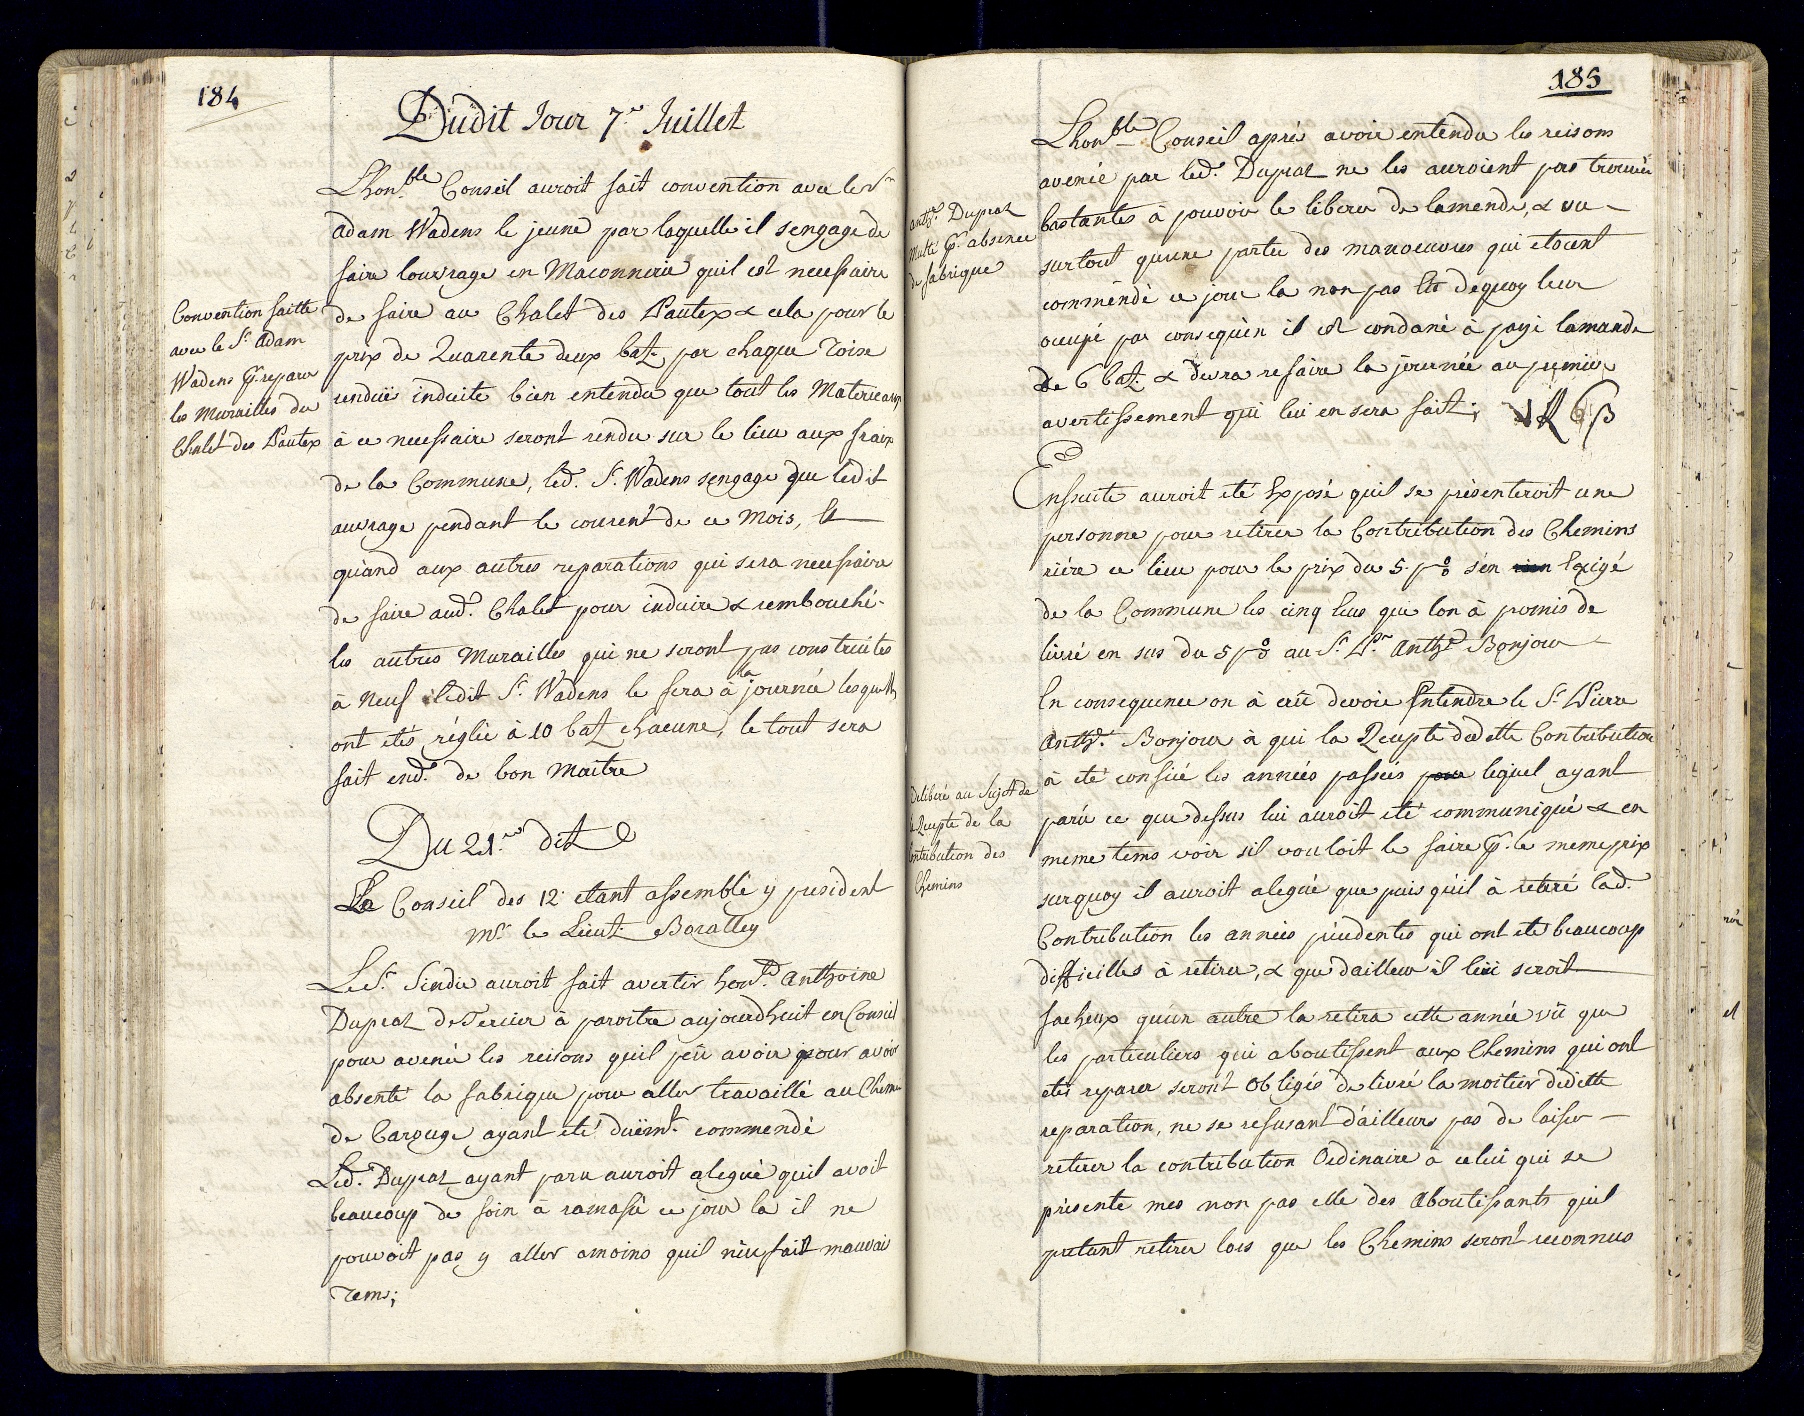 184
Dudit Jour 7.e Juillet
Lhon.ble Conseil auroit fait convention avec le Sr
adam Wadens le jeune par laquelle il s'engage de
faire louvrage en Maconnerie quil est necessaire
Convention faitte
avec le Sr. Adam
Wadens pr. reparer
les Murailles du
Chalet des Pautex
de faire au Chalet des Pautex & cela pour le
prix de Quarente deux batz. par chaque Toise
enduë induite bien entendu que tout les Materieaux
à ce necessaire seront rendu sur le lieu aux fraix
de la Commune, led. Sr. Wadens sengage que ledit
auvrage pendant le courent de ce Mois, Et
quànd aux autres reparations qui sera necessaire
de faire aud.t Chalet pour induire & rembouché
les autres Murailles qui ne seront pas construites
à Neuf ledit Sr. Wadens le fera à la journée lesquels
ont etés réglée à 10 batz chacune, le tout sera
fait end. de bon Maitre
Du 21.me dit
Le Conseil des 12 etant assemblé y president
Mr. le Lieut. Boratley
Le Sr. Sindic auroit fait avertir hon.d Anthoine
Dupraz de Tercier à paroitre aujourdheuit en Conseil
pour avenir les reisons quil peû avoir pour avoir
absenté la fabrique pour aller travaillé au Chemin
de Carouge ayant eté duëmt. commendé
Led. Dupraz ayant paru auroit alegué quil avoit
beaucoup de foin à ramassé ce jour la il ne
pouvoit pas y aller amoins quil neusfait mauvai
Tems;
185
Lhon.ble Conseil aprés avoir entendu les reisons
avenié par led. Dupraz ne les auroient pas trouvées
anth.e Dupraz
Multé pr. absence
de fabrique
bastantes à pouvoir le liberer de lamende, & vu
surtout quune partie des manoeuvres qui etoient
commendé ce jour la non pas Ut dequoy leur
occupé par consequèn il est condané à payé lamande
de 6 batz. & devra refaire la journée au premier
avertissement qui lui en sera fait;
Ensuite auroit eté Exposé quil se prèsenteroit une
personne pour retirer la Contribution des Chemins
riére ce lieu pour le prix du 5 p% s'én Exigé
de la Commune les cinq Ecus que lon à promis de
livré en sus du 5 p% au Sr. Pr. Anthe Bonjour
En consequence on à crû devoir Entendre le Sr. Pierre
Anthe. Bonjour à qui la Recepte dedette Contribution
Deliberé au Sujet de
la Recepte de la
Contribution des
Chemins
à eté confiée les années passées lequel ayant
parû ce que dessus lui auroit eté communiqué & en
meme tems voir sil vouloit le faire pr. le meme prix
surquoy il auroit alegué que puis quil à retiré lad.
Contribution les années precedentes qui ont eté beaucoup
difficilles à retirer, & que dailleur il lui seroit
facheux quun autre la retira cette année vû que
les particuliers qui aboutissent aux Chemins qui ont
etés reparer seront Obligés de livré la moitier dedette
reparation, ne se refusant dailleurs pas de laisser
retirer la contribution Ordinaire a celui qui se
présente mes non pas elle des Aboutissants quil
pretant retirer lors que les Chemins seront reconnus